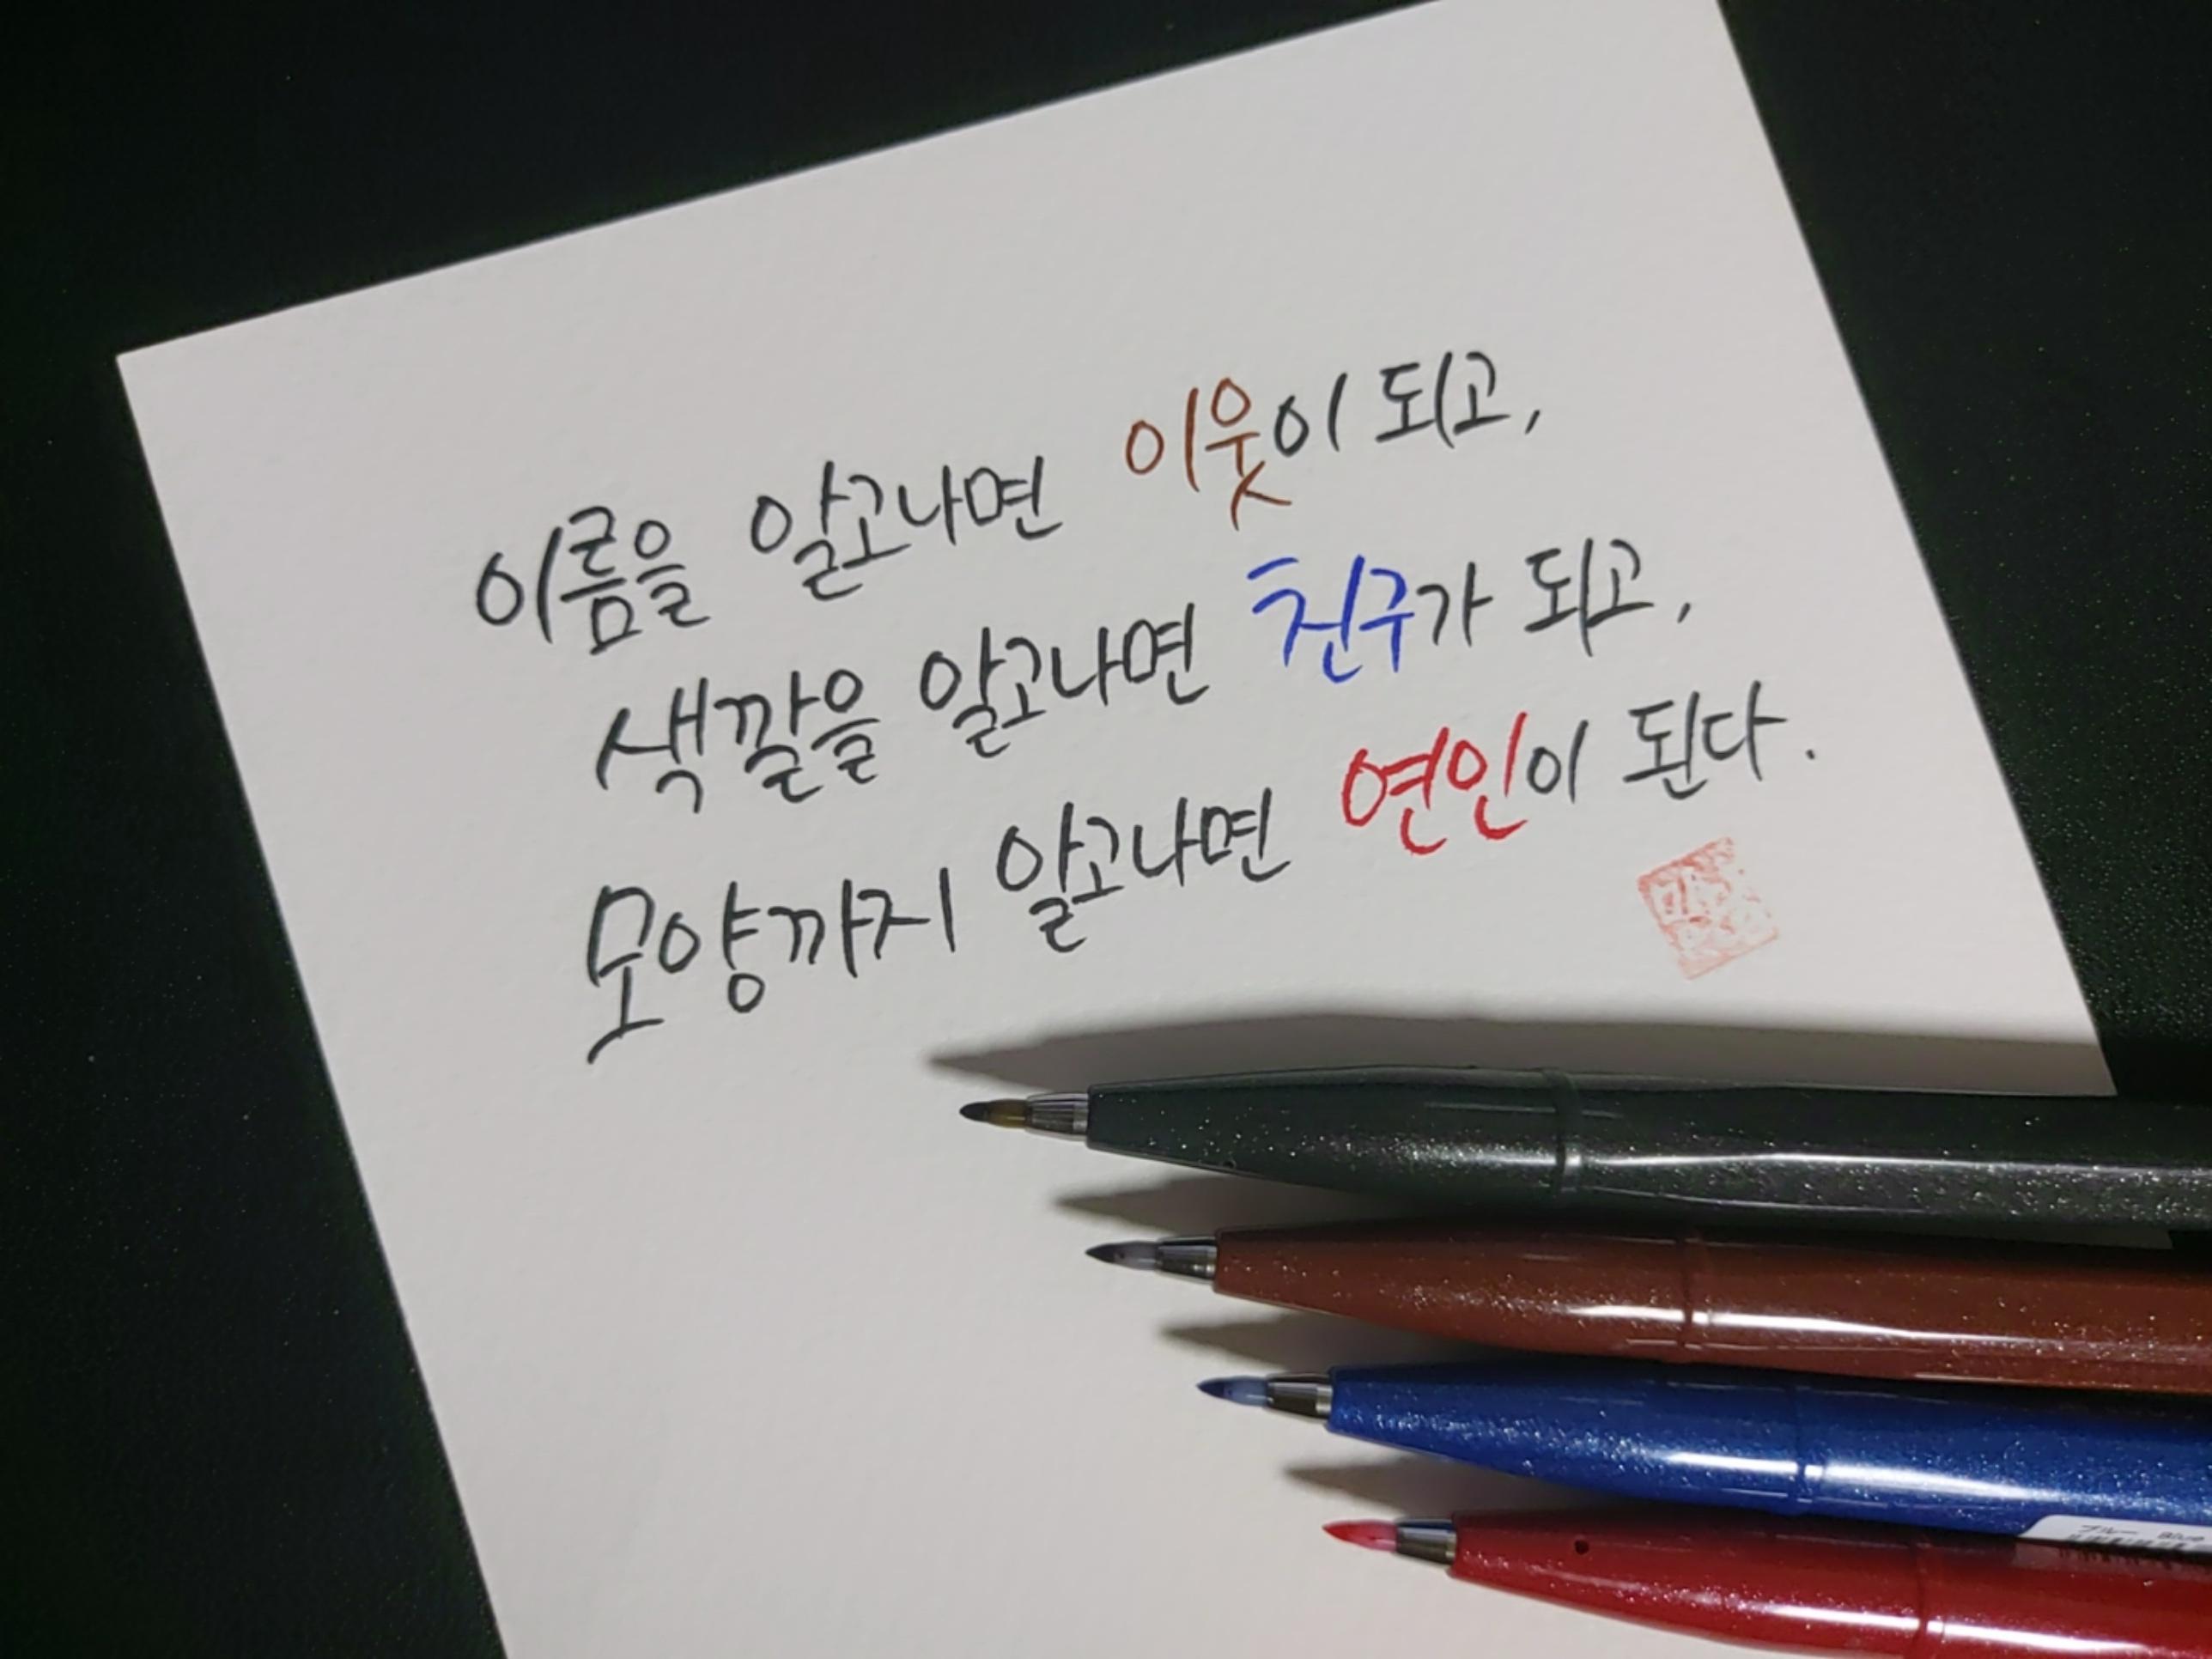 이름을 알고나면 이웃이 되고,
색깔을 알고나면 친구가 되고,
모양까지 알고나면 연인이 된다.
ブルー Blue